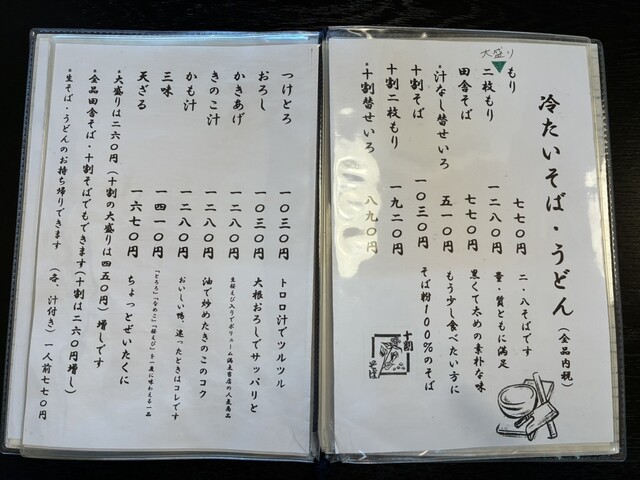 冷たいそば・うどん（全品内税）
大盛り
もり 七七〇円 二・八そばです
二枚もり 一二八〇円 量・質ともに満足
田舎そば 七七〇円 黒くて太めの素朴な味
・汁なし替せいろ 五一〇円 もう少し食べたい方に
十割そば 一〇三〇円 そば粉100％のそば
十割二枚もり 一九二〇円
・十割替せいろ 八九〇円
十割
そば
つけとろ 一〇三〇円 トロロ汁でツルツル
おろし 一〇三〇円 大根おろしでサッパリと
かきあげ 一二八〇円 生桜えび入りでボリューム満点当店の人気商品
きのこ汁 一二八〇円 油で炒めたきのこのコク
かも汁 一二八〇円 おいしい鴨、迷ったときはコレです
三味 一四一〇円 「とろろ」「なめこ」「桜えび」を一度に味わえる一品
天ざる 一六七〇円 ちょっとぜいたくに
・大盛りは二六〇円（十割の大盛りは四五〇円）増しです
・全品田舎そば・十割そばでもできます（十割は二六〇円増し）
・生そば・うどんのお持ち帰りできます （各、汁付き）一人前七七〇円